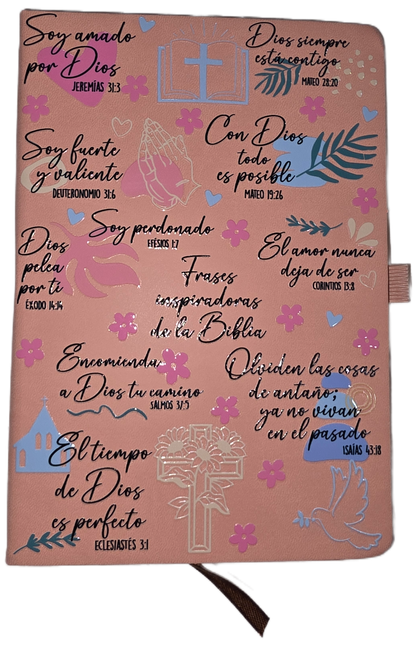 Soy amado
por Dios
JEREMÍAS 31:3
Dios siempre
está contigo
MATEO 28:20
Soy fuerte
y valiente
DEUTERONOMIO 31:6
Con Dios
todo
es posible
MATEO 19:26
Soy perdonado
EFÉSIOS 1:7
Dios
pelea
por ti
ÉXODO 14:14
El amor nunca
deja de ser
CORINTIOS 13:8
Frases
inspiradoras
de la Biblia
Encomienda
a Dios tu camino
SALMOS 37:5
Olviden las cosas
de antaño;
ya no vivan
en el pasado
ISAÍAS 43:18
El tiempo
de Dios
es perfecto
ECLESIASTÉS 3:1